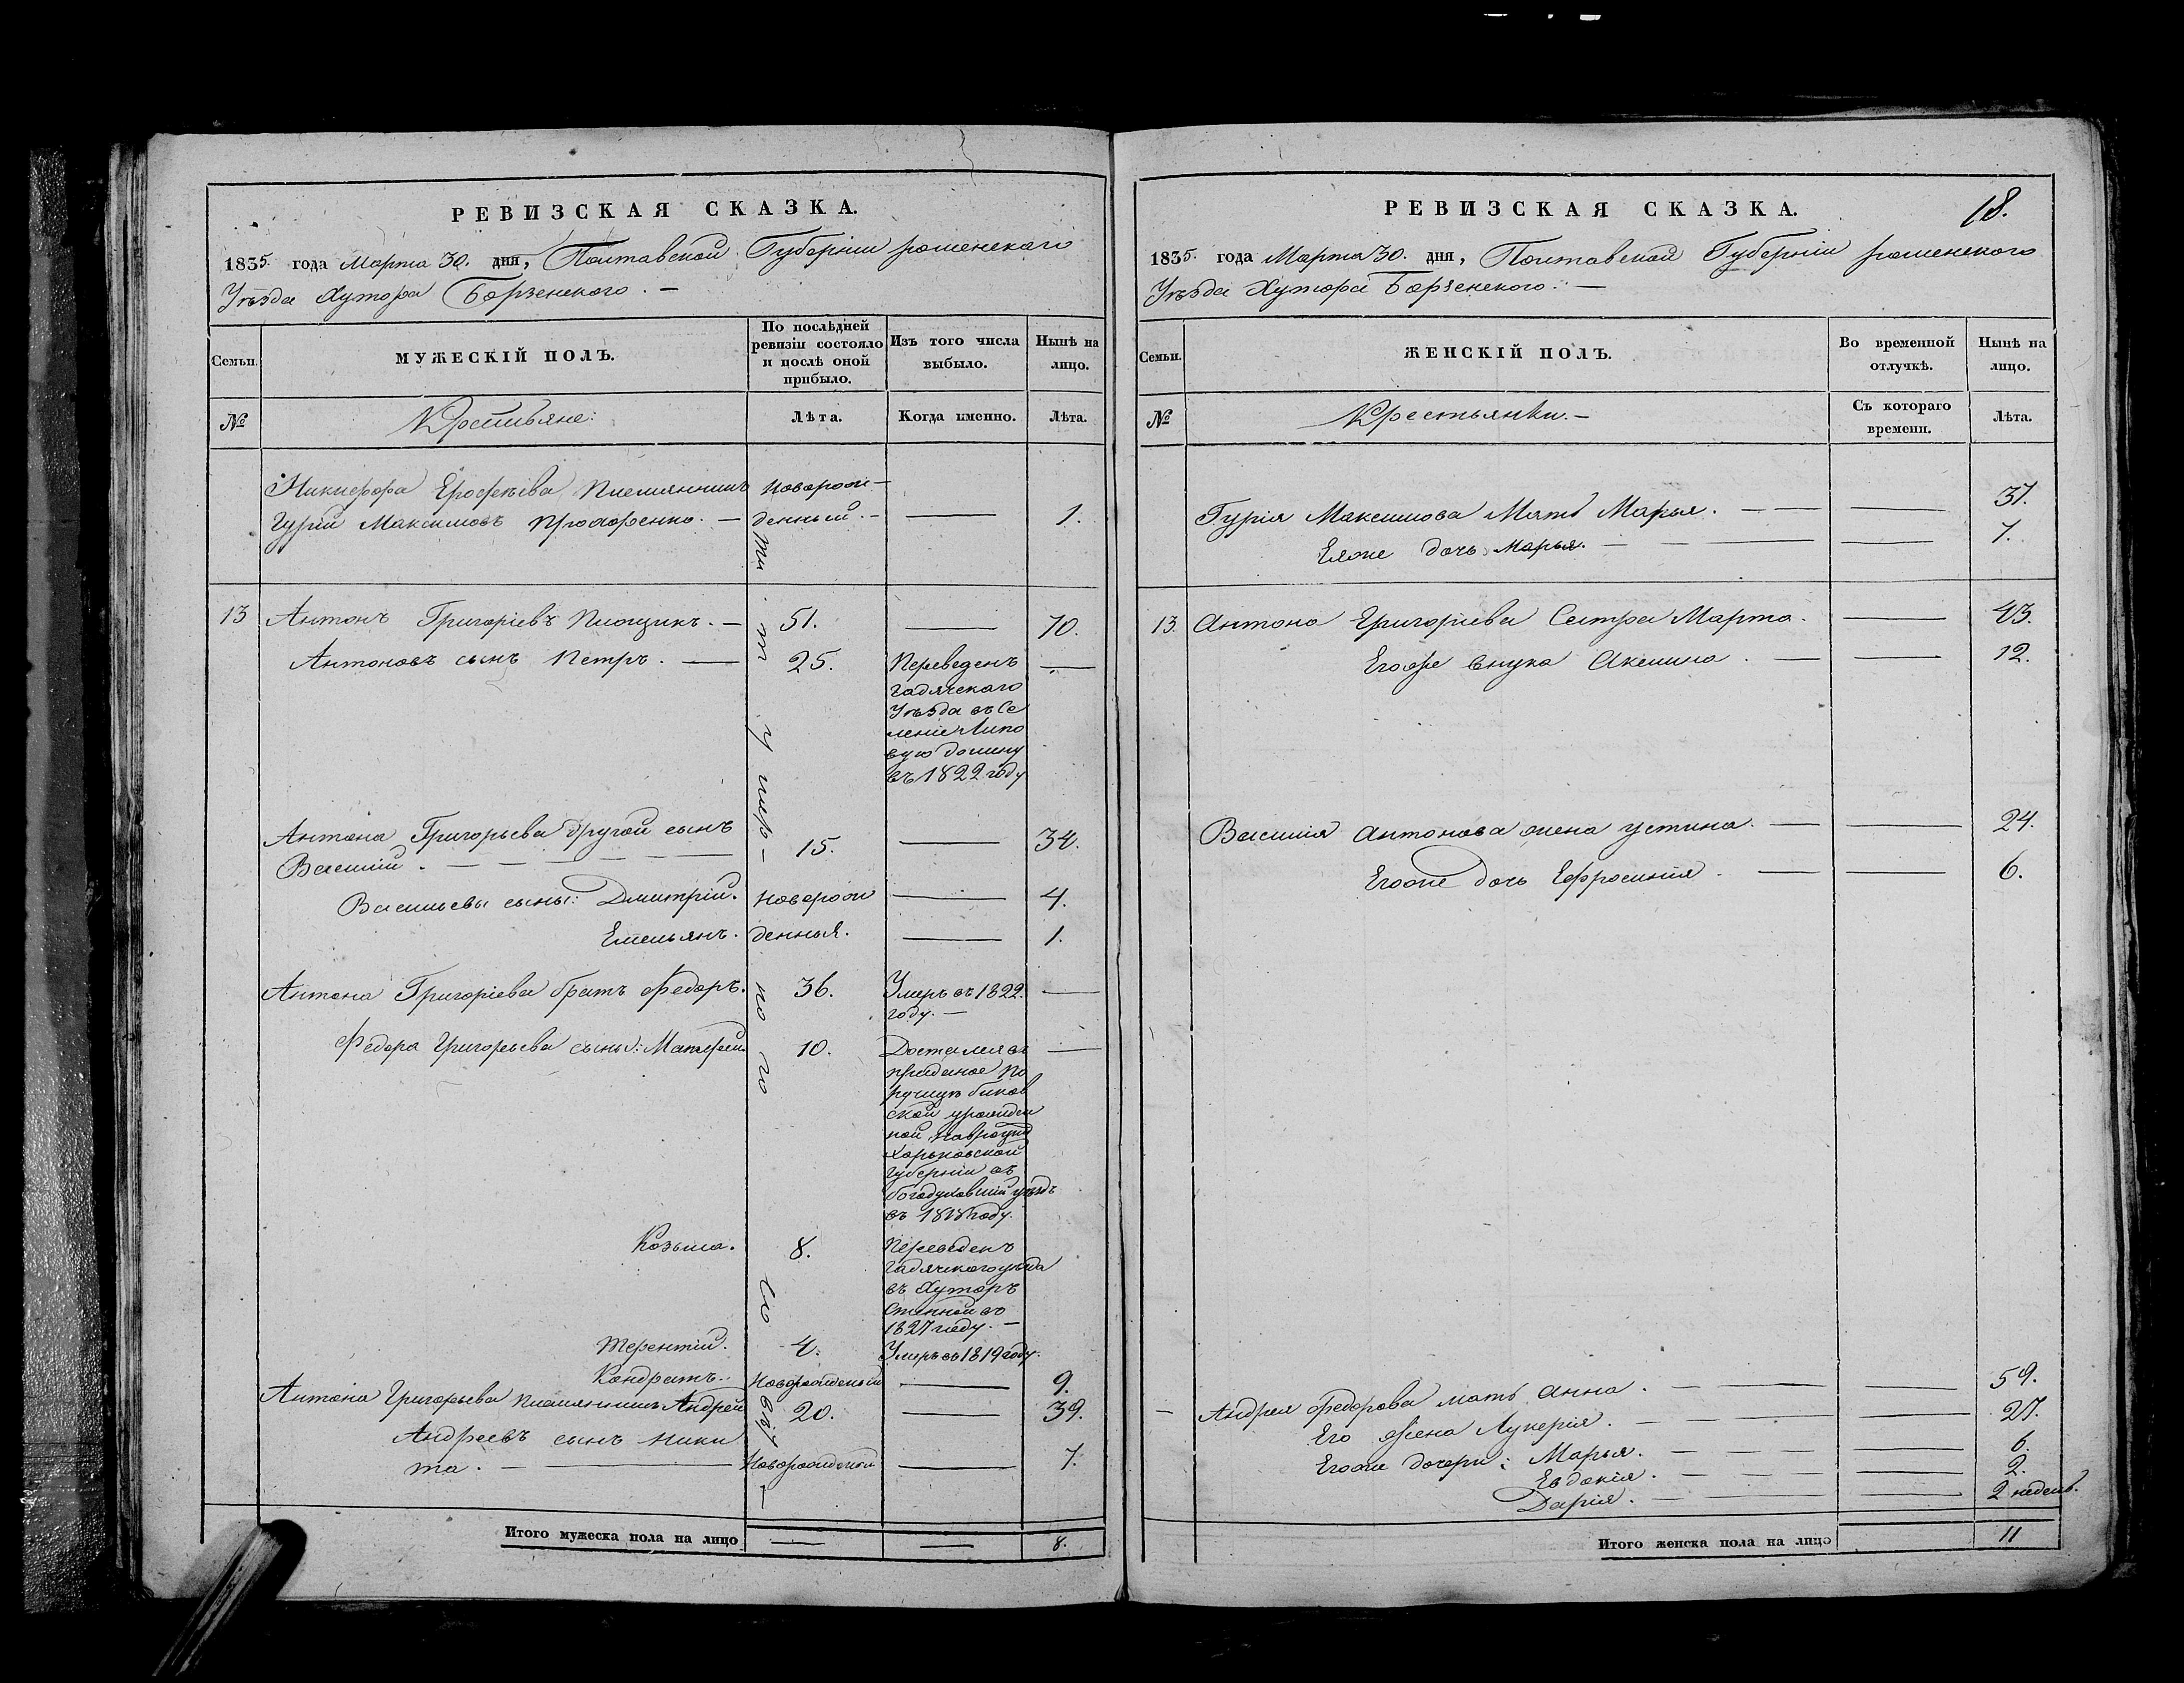 РЕВИЗСКАЯ СКАЗКА.
1835. года Марта 30. дня, Полтавской Губерніи роменскаго
Уѣзда Хутора Борзенского. —
Семьи.
МУЖЕСКІЙ ПОЛЪ.
По послѣдней ревизіи состояло и послѣ оной прибыло.
Изъ того числа выбыло.
Нынѣ на лицо.
№
Крестьяне:
Лѣта.
Когда именно.
Лѣта.
Никифора Ерофѣева племянникъ новорож-
Гурій Максимовъ Прохоренко. — денный. — — 1.
13 Антонъ Григоріевъ — 51. — 70.
Антоновъ сынъ Петръ. — 25. Переведенъ —
Гадячскаго
Уѣзда въ Се
леніе Липо
вую долину
въ 1822 году
Антона Григорьева другой сынъ
Василій. — 15. — 34.
Васильевы сыны: Дмитрій. новорож — 4.
Емельянъ. денныя. — 1.
Антона Григоріева братъ Федоръ. 36. Умеръ въ 1822. —
году. —
Федора Григорьева сыны: Матфей. 10. Достался въ —
приданое По
ручицѣ биков
ской урожден
ной
Харьковской
Губерніи въ
богодуховскій уѣздъ
въ 1818 году.
Козьма. 8. Переведенъ
Гадячскаго уѣзда
въ Хуторъ
Степной въ
1827 году. —
Терентій. 4. Умеръ въ 1819 году.
Кондратъ. Новорожденый — 9.
Антона Григорьева племянникъ Андрей 20. — 39.
Андреевъ сынъ Ники
та. — Новорожденой — 7.
Итого мужеска пола на лицо — — 8.
18.
РЕВИЗСКАЯ СКАЗКА.
1835. года Марта 30. дня, Полтавской Губерніи роменского
Уѣзда Хутора Борзенского. —
Семьи.
ЖЕНСКІЙ ПОЛЪ.
Во временной отлучкѣ.
Нынѣ на лицо.
№
Крестьянки. —
Съ котораго времени.
Лѣта.
Гурія Максимова Мать Марья. — — 37.
Еяже дочь Марья. — — 7.
13. Антона Григоріева Сестра Марта. — 43.
Егоже внука Аксинья. — — 12.
Василія Антонова жена Устина. — — 24.
Егоже дочь Ефросинія. — — 6.
— Андрея Федорова мать Анна. — — 59.
Его жена Лукерія. — — 27.
Егоже дочери: Марья. — — 6.
Евдокія. — — 2.
Дарія. — — 2 недель.
Итого женска пола на лицо 11